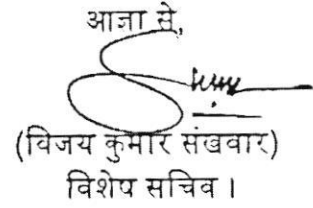 आज्ञा से,
(विजय कुमार संखवार)
विशेष सचिव ।